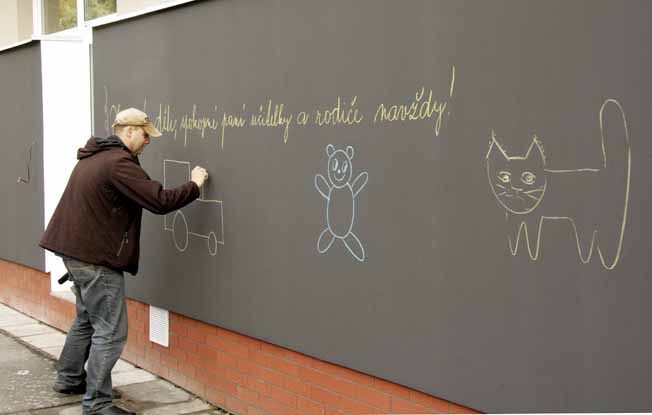 děti, spokojné paní učitelky a rodiče navždy!